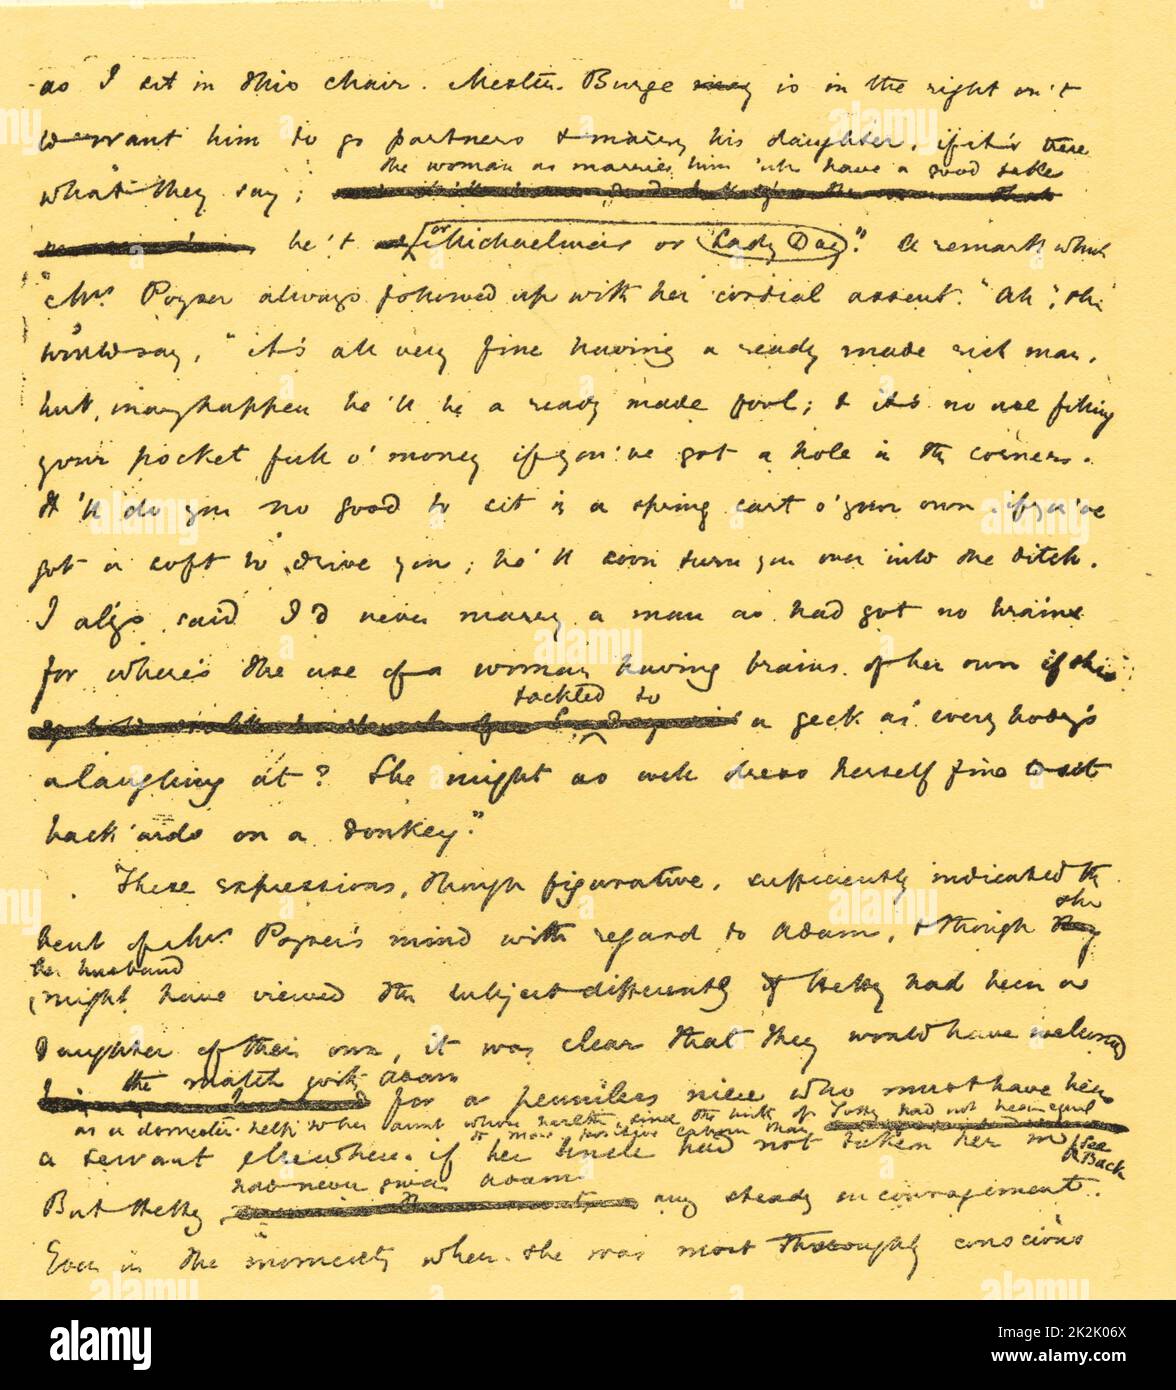 as I sit in this chair. Mester Burge is in the right on't
to want him to go partners & marry his daughter, if it's true
the woman as marries him 'ull have a good take
what they say;
he't or Michaelmas or Lady Day." A remark which
Mrs. Poyser always followed up with her cordial assent. "Ah", she
would say, "it's all very fine having a ready made rich man,
but, mayhappen he'll be a ready made fool; & it's no use filling
your pocket full o' money if you've got a hole in the corner.
It'll do you no good to sit in a spring cart o' your own if you've
got a soft to drive you; he'll soon turn you over into the ditch.
I al'ys said I'd never marry a man as had got no brains
for where's the use of a woman having brains of her own if she's
tackled to
a geck as every body's
a laughing at? She might as well dress herself fine to sit
back'ards on a donkey."
These expressions, though figurative, sufficiently indicated the
she
bent of Mrs. Poyser's mind with regard to Adam, & though they
her husband
might have viewed the subject differently if Hetty had been a
daughter of their own, it was clear that they would have welcomed
the match with Adam
for a penniless niece who must have been
as a domestic help to her aunt whose health since the birth of Totty had not been equal
to more positive labour than
a servant elsewhere, if her uncle had not taken her in
(See Back
had never given Adam
But Hetty any steady encouragement.
Even in the moments when she was most thoroughly conscious
alamy
Image ID: 2K2K06X
www.alamy.com